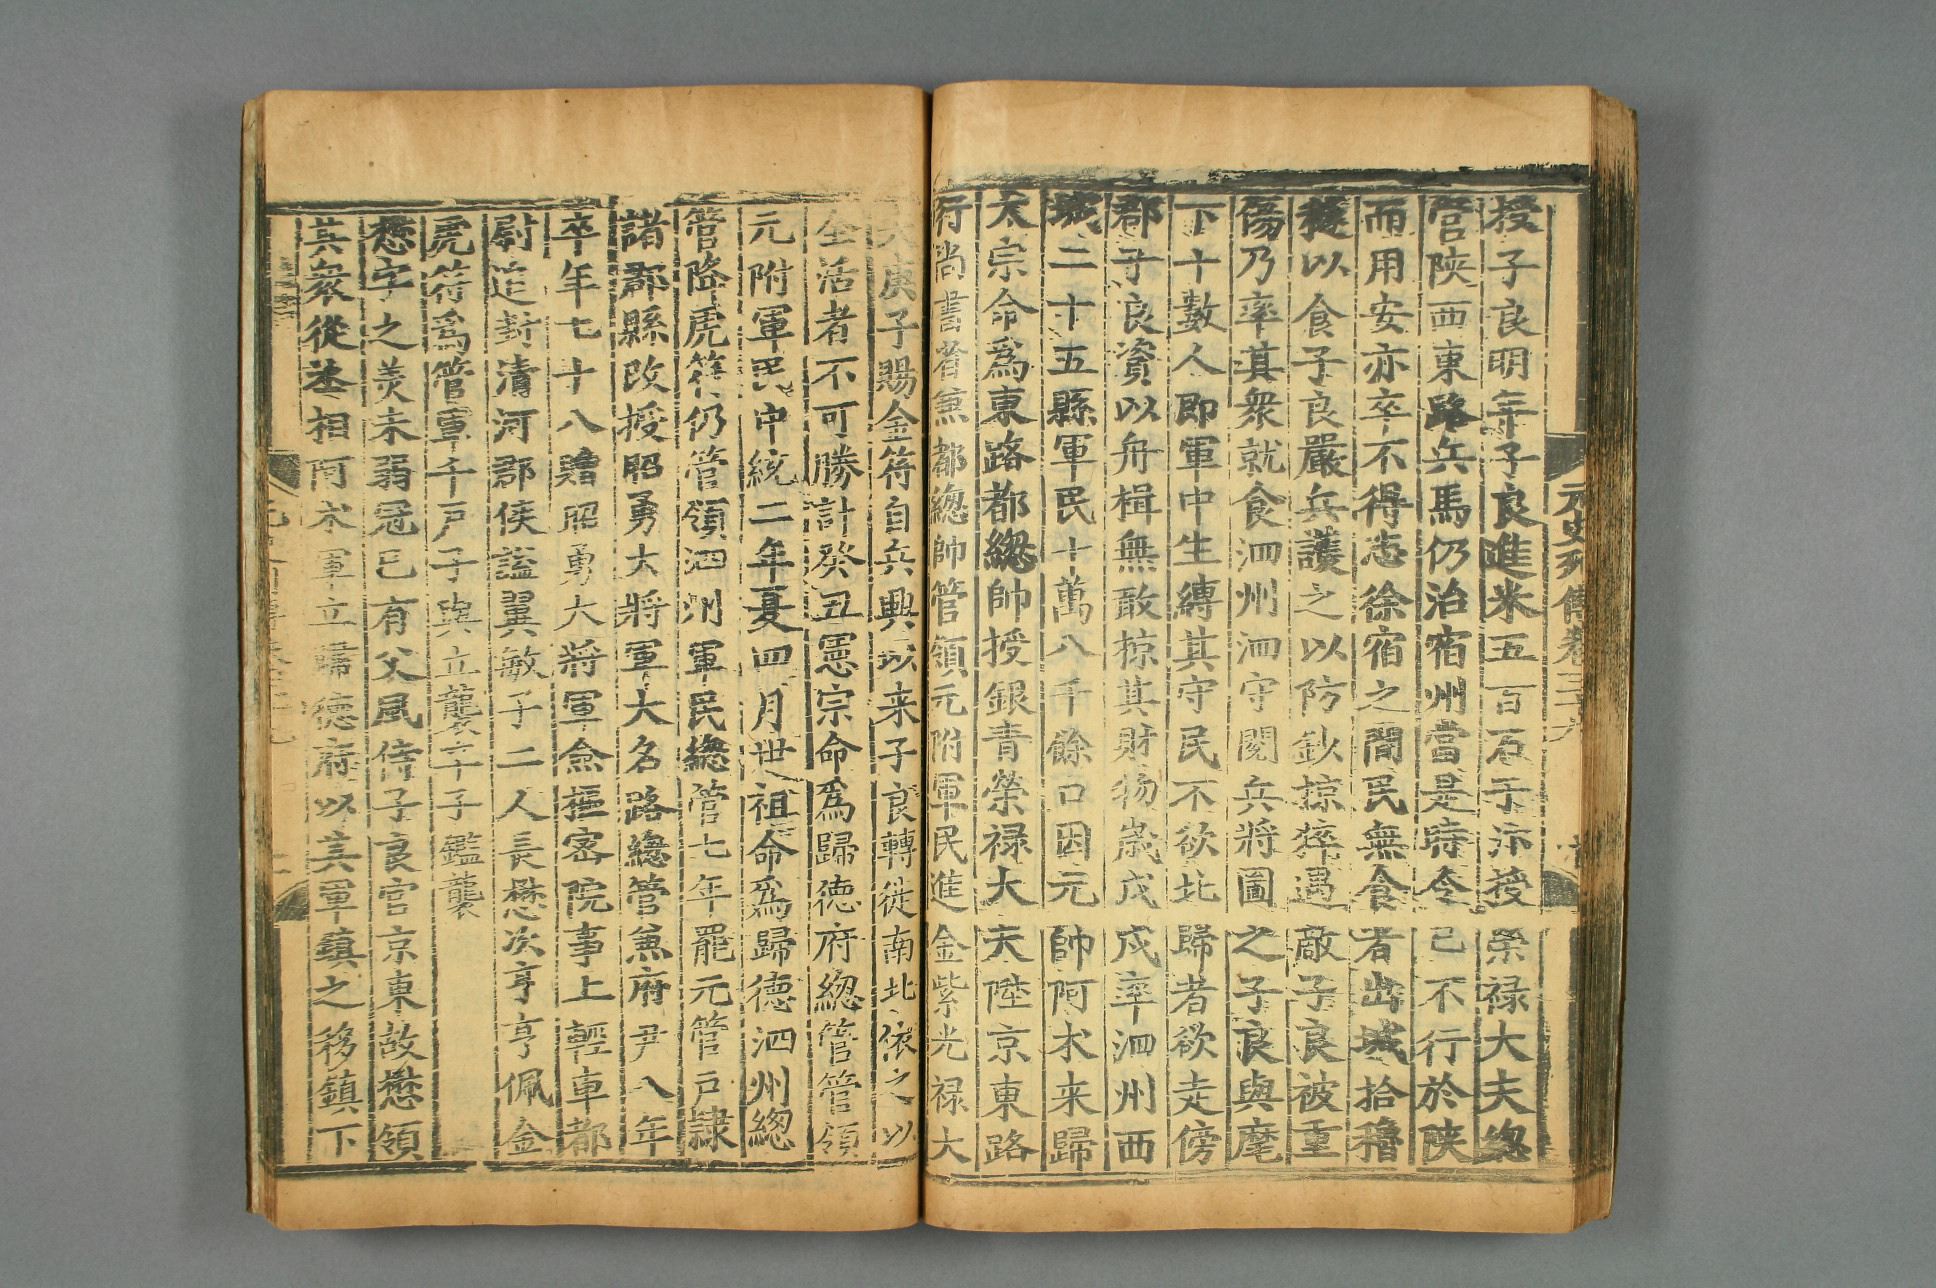 元史列傳卷三十九
授子良明年子良進米五百石于汴授榮祿大夫總
管陝西東路兵馬仍治宿州當是時令已不行於陝
而用安亦卒不得志徐宿之間民無食者出城拾穭
穟以食子良嚴兵護之以防鈔掠猝遇敵子良被重
傷乃率其衆就食泗州泗守閱兵將圖之子良與麾
下十數人即軍中生縛其守民不欲北歸者欲走傍
郡子良資以舟楫無敢掠其財物歲戊戌率泗州西
城二十五縣軍民十萬八千餘口因元帥阿朮来歸
太宗命爲東路都總帥授銀青榮祿大夫陞京東路
行尚書省兼都總帥管領元附軍民進金紫光祿大
夫庚子賜金符自兵興以来子良轉徙南北依之以
全活者不可勝計癸丑憲宗命爲歸德府總管管領
元附軍民中統二年夏四月世祖命爲歸德泗州總
管降虎符仍管領泗州軍民總管七年罷元管戶隸
諸郡縣改授昭勇大將軍大名路總管兼府尹八年
卒年七十八贈昭勇大將軍僉樞密院事上輕車都
尉追封清河郡侯謚翼敏子二人長懋次亨亨佩金
虎符爲管軍千戶子與立襲卒子鑑襲
懋字之美未弱冠已有父風侍子良官京東故懋領
其衆從丞相阿朮軍立歸德府以其軍鎮之移鎮下